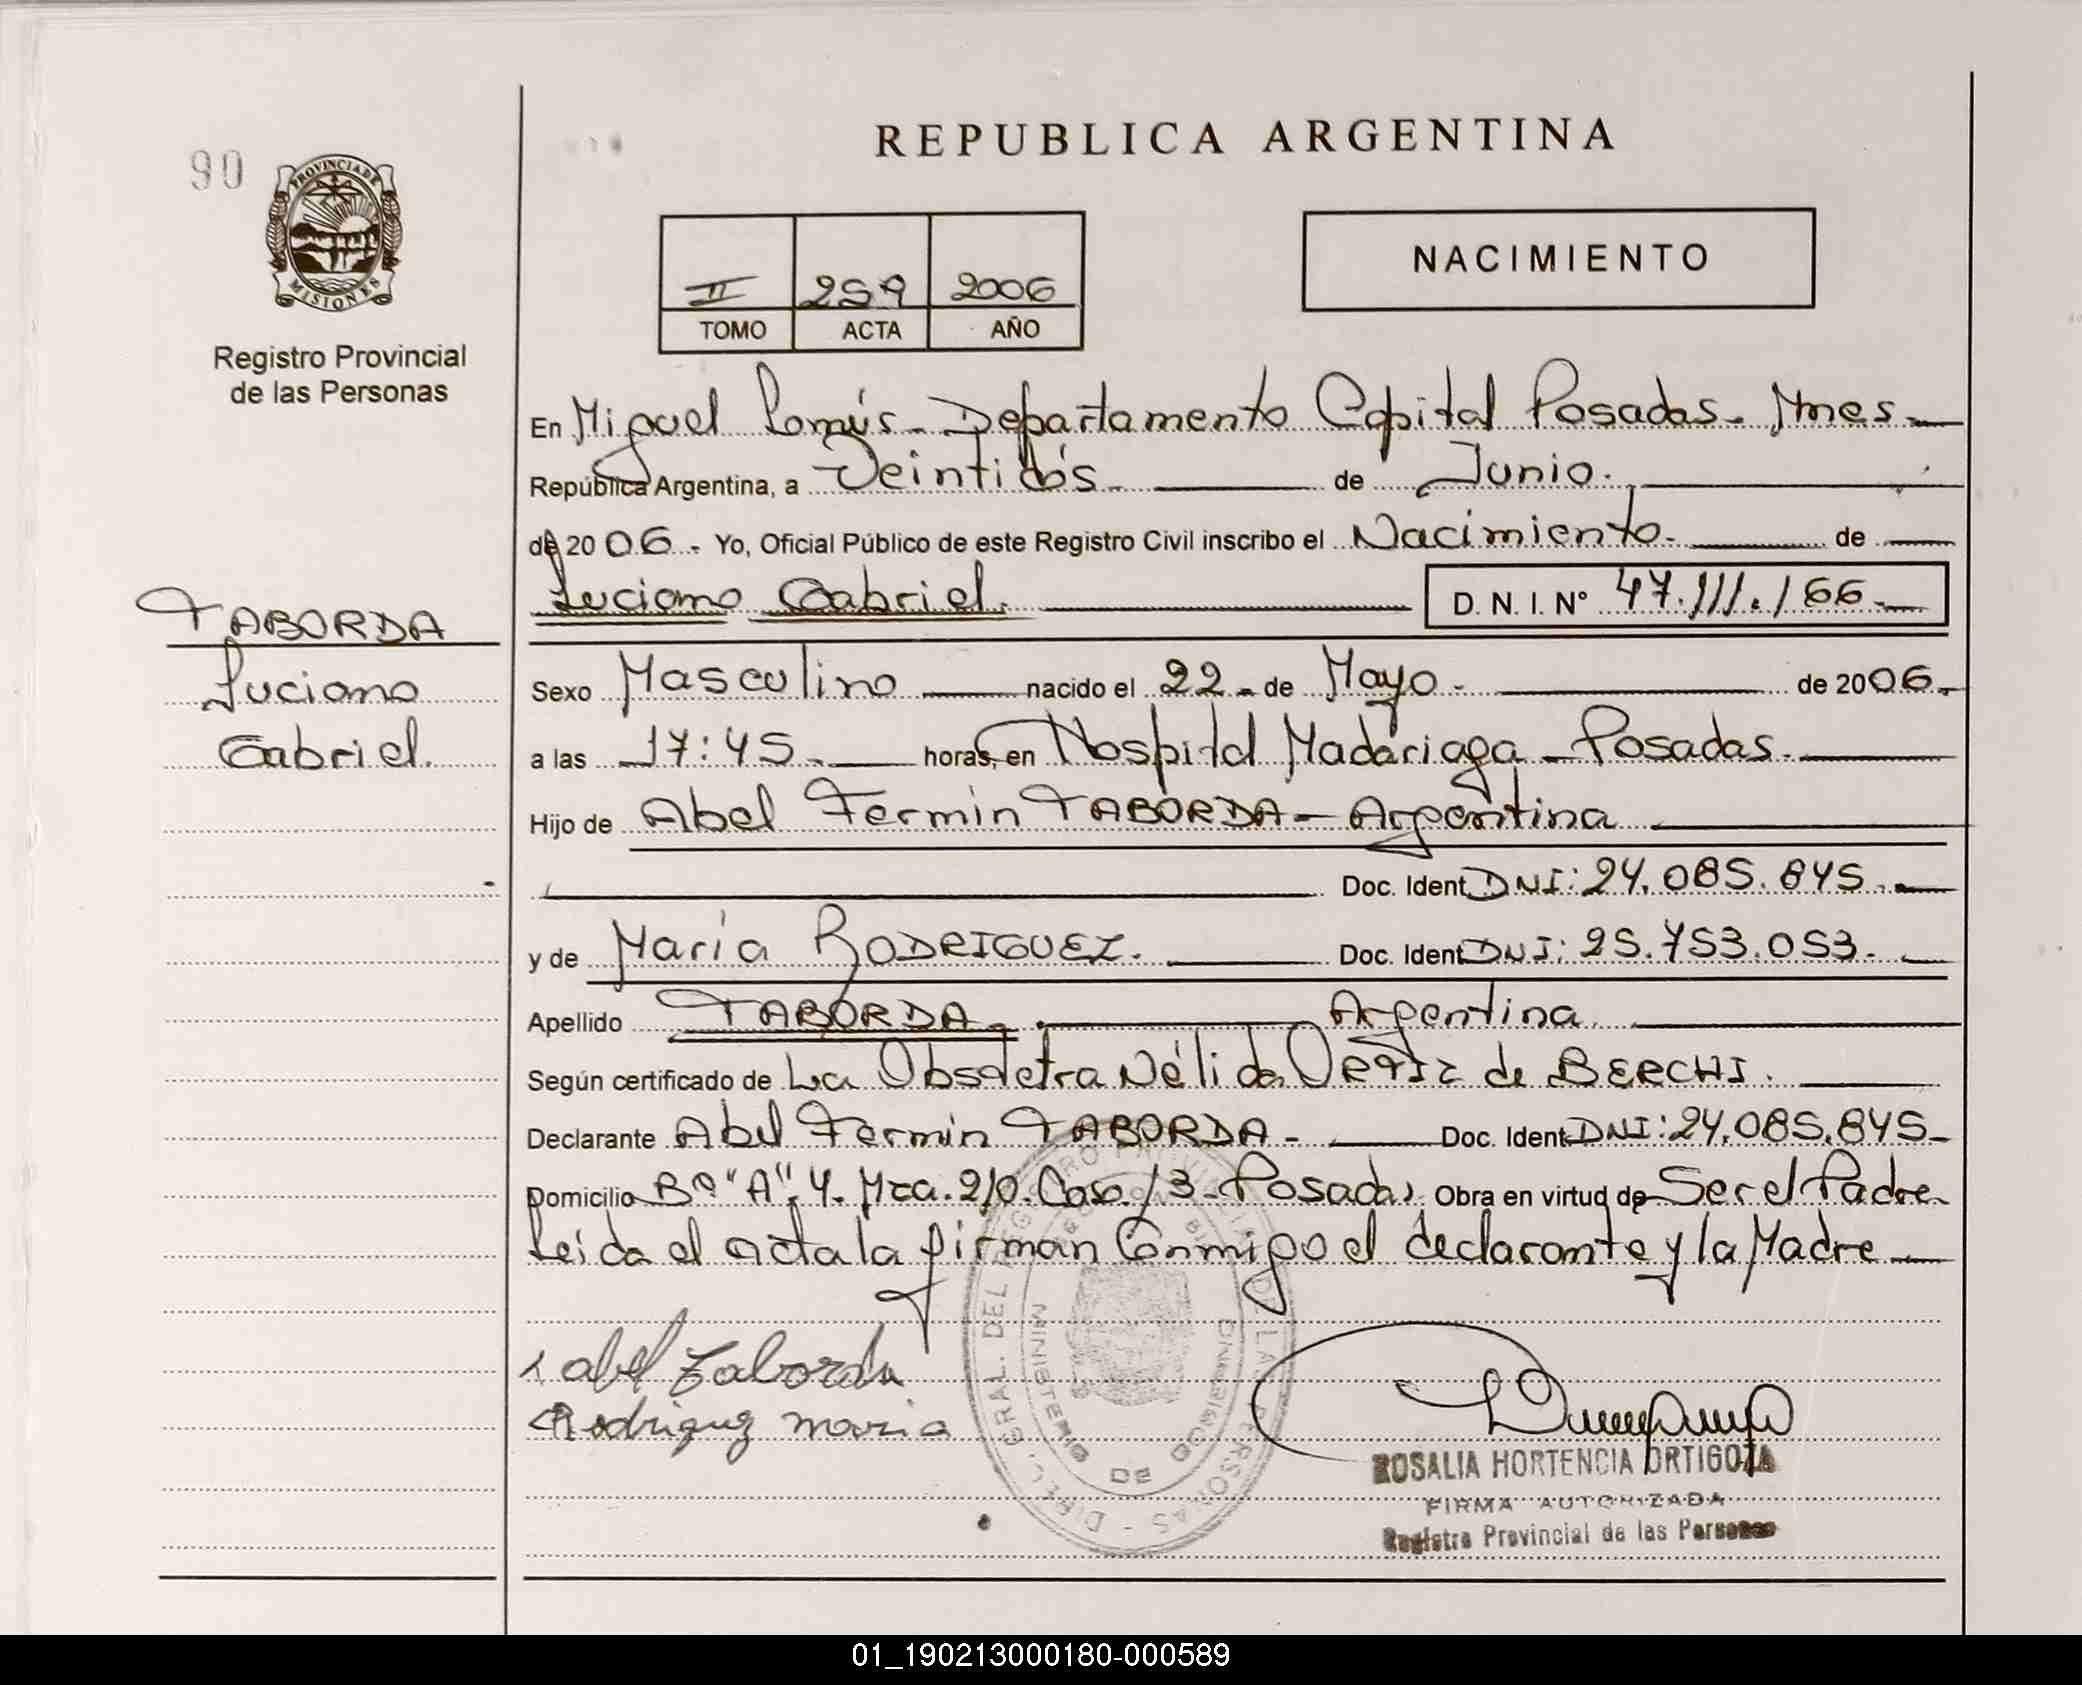 REPUBLICA ARGENTINA
90
PROVINCIA DE MISIONES
Registro Provincial
de las Personas
II 259 2006
TOMO ACTA AÑO
NACIMIENTO
En Miguel Lanús - Departamento Capital Posadas - Mnes -
República Argentina, a Veintidós - de Junio.
de 2006 - Yo, Oficial Público de este Registro Civil inscribo el Nacimiento - de
Luciano Gabriel. D. N. I. N° 47.111.166 -
TABORDA
Luciano
Gabriel.
Sexo Masculino nacido el 22 - de Mayo - de 2006 -
a las 17:45 - horas, en Hospital Madariaga - Posadas.
Hijo de Abel Fermin TABORDA - Argentina
Doc. Ident. DNI: 24.085.845. -
y de María RODRIGUEZ. Doc. Ident. DNI: 25.753.053 -
Apellido TABORDA - Argentina
Según certificado de La Obstetra Nélida ORTIZ de BERCHI.
Declarante Abel Fermin TABORDA - Doc. Ident. DNI: 24.085.845 -
Domicilio B° "A" 4. Mza. 210. Casa 13 - Posadas. Obra en virtud de Ser el Padre
Leida el acta la firman Conmigo el declarante y la Madre
abel Taborda
Rodriguez maria
DIREC. GRAL. DEL REGISTRO PROVINCIAL DE LAS PERSONAS
MINISTERIO DE GOBIERNO
ROSALIA HORTENCIA ORTIGOZA
FIRMA AUTORIZADA
Registro Provincial de las Personas
01_190213000180-000589